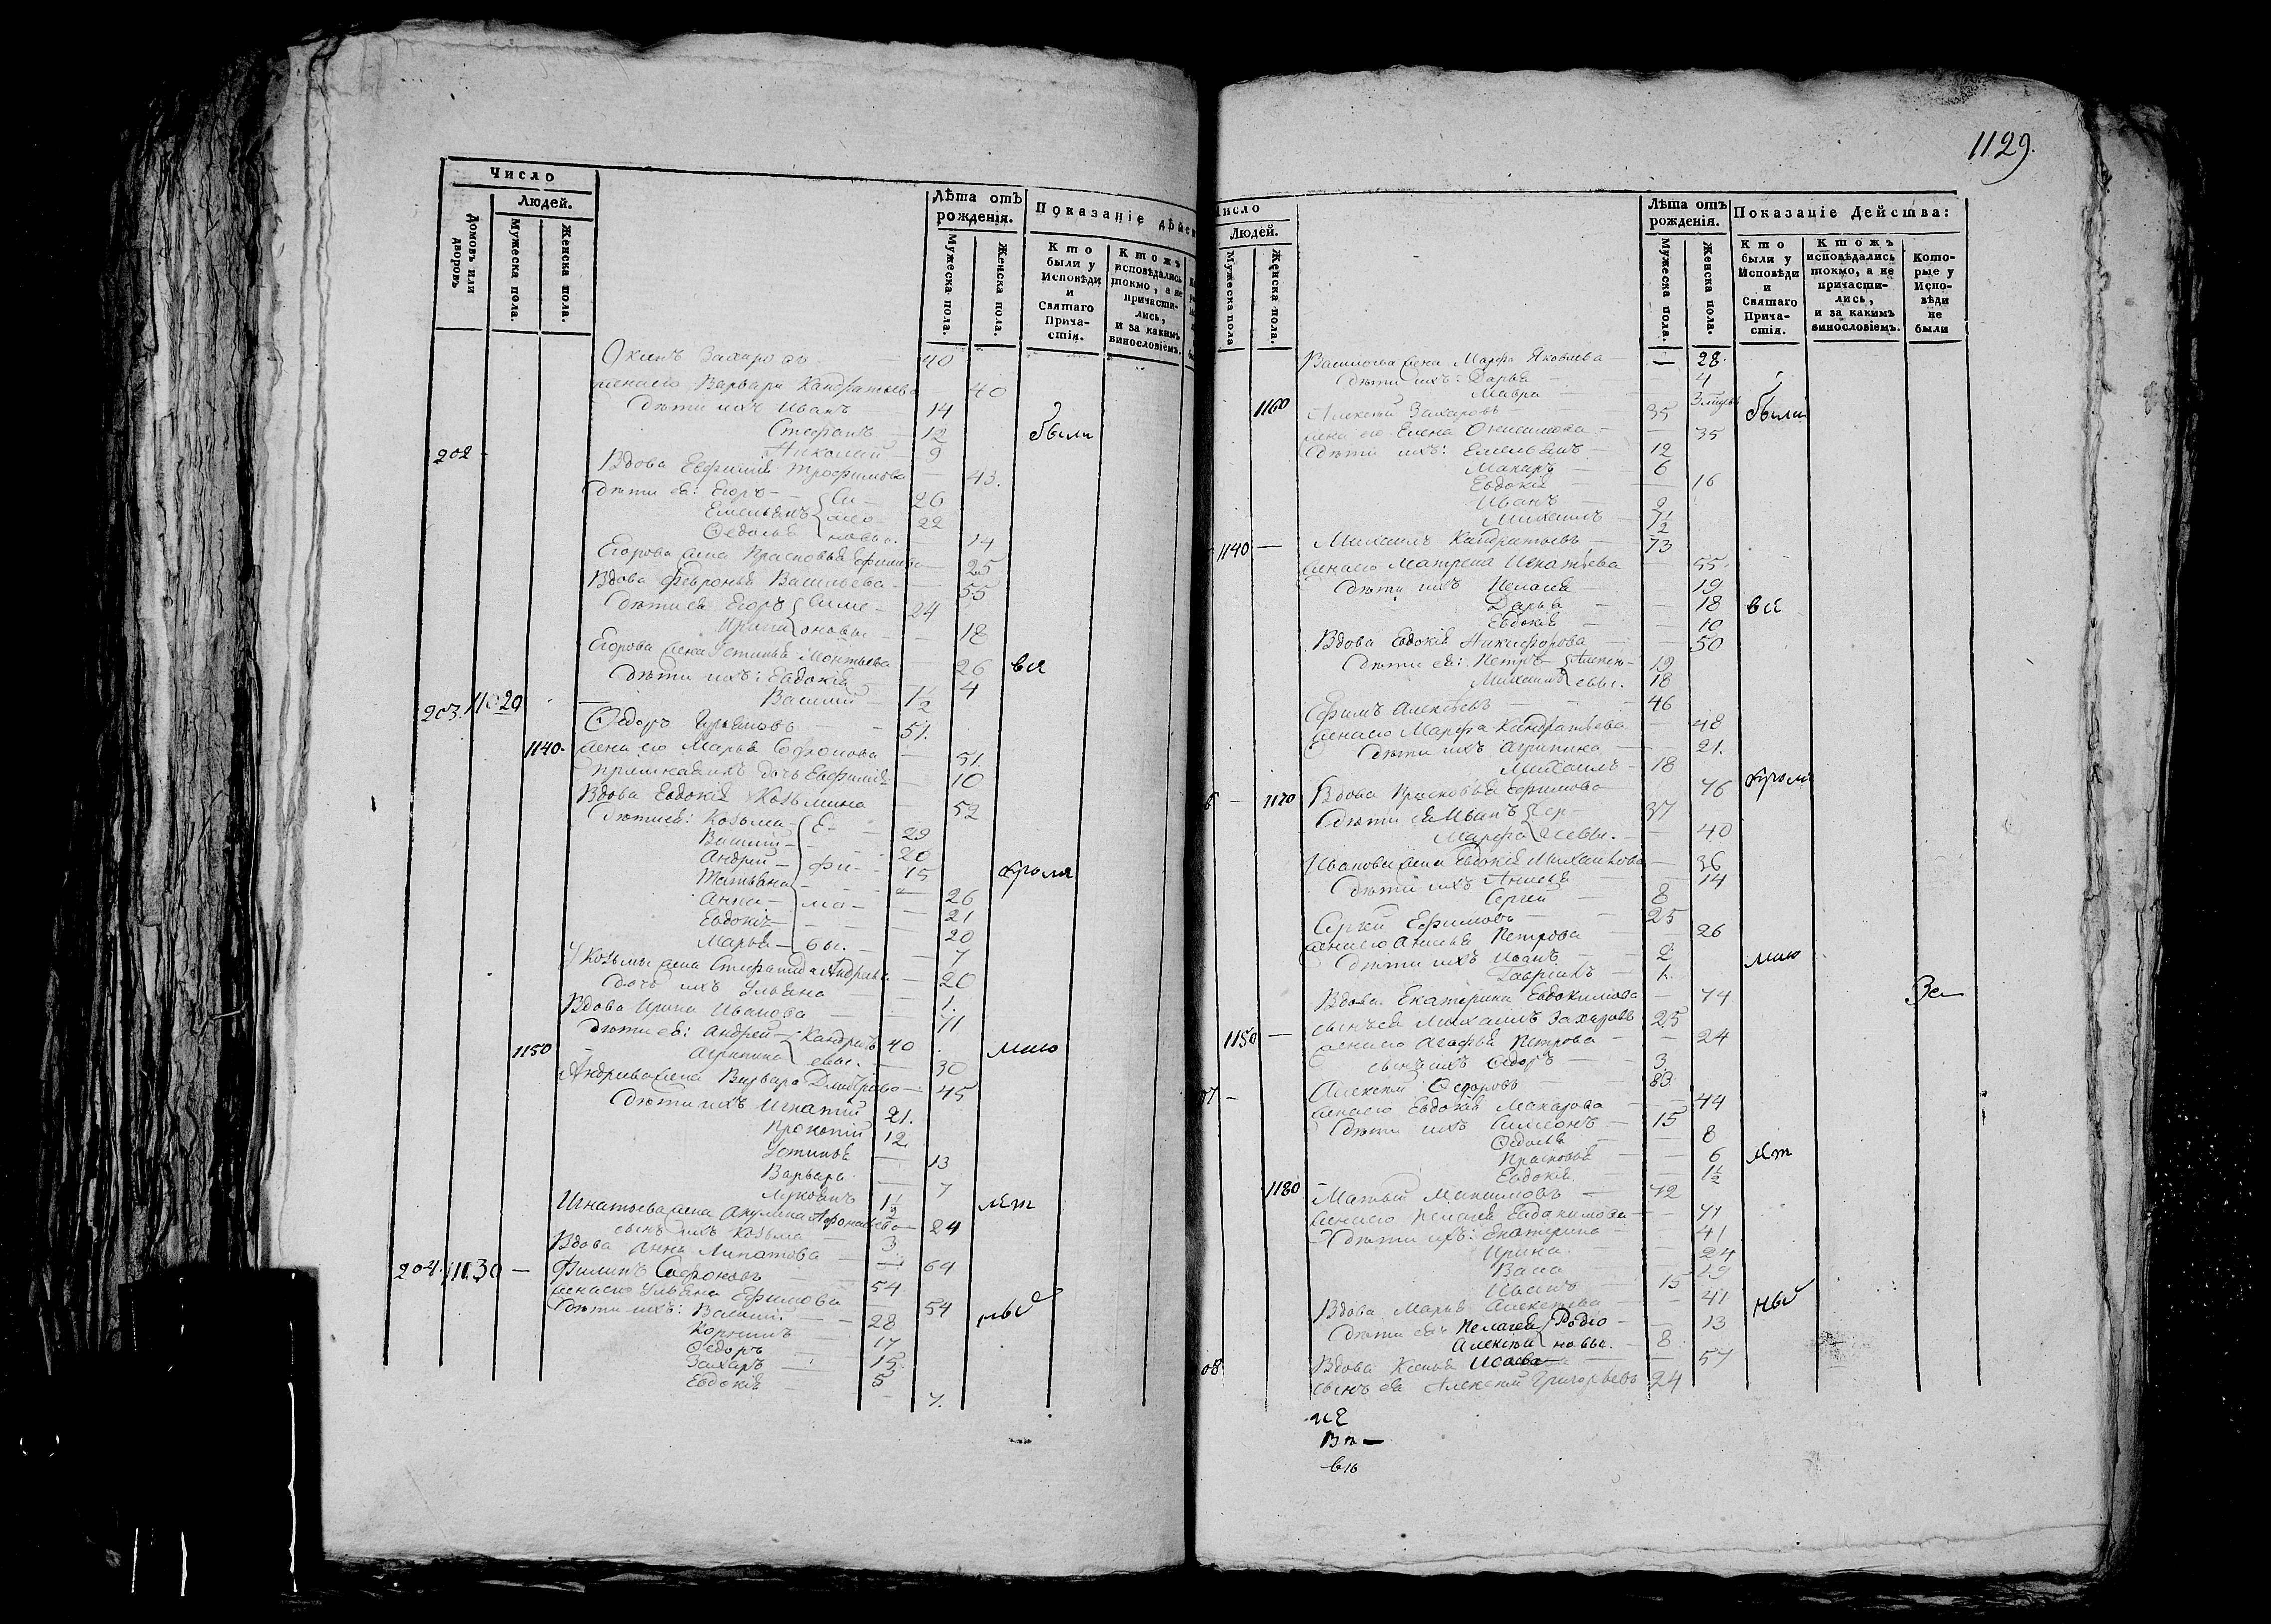 Число
Людей.
Домовъ или дворовъ
Мужеска пола.
Женска пола.
Лѣта отъ рожденія.
Мужеска пола.
Женска пола.
Показаніе дѣйс
Кто были у Исповѣди и Святаго Прича-стія.
Ктожъ исповѣдались токмо, а не причасти-лись, и за какимъ винословіемъ.
Захаровъ — 40
жена его Варвара Кандратьева — 40
дѣти ихъ Иванъ — 14
Стефанъ — 12 были
Николай — 9
202 Вдова Евфимія Трофимова — 43.
дѣти ея: Егоръ — Си — 26
Емельянъ мео — 22
Федосья новы. — 14
Егорова жена Прасковья — 25
Вдова Февронья Васильева — 55
дѣти ея Егоръ Симе — 24
Ирина оновы — 18
Егорова жена Устинья — 26 всѣ
дѣти ихъ: Евдокія — 4
Василій — 1½
203. 1120 Федоръ — 51.
1140. жена его Марья Софронова — 51.
дочь Евфимія — 10
Вдова Евдокія Козьмина — 52
дѣти ея: Козьма — Е — 29
Василій — 20
Андрей — фи — 15 кромѣ
Татьяна — 26
Анна — мо — 21
Евдокія — 20
Марья — вы. — 7
У Козьмы жена Стефанида Андреева — 20
дочь ихъ Ульяна — 1.
Вдова Ирина Иванова — 71
дѣти ея: Андрей Кандрать 40 мало
1150 Агрипина евы. — 30
Андреева жена Варвара Дмитріева — 45
дѣти ихъ Игнатій 21.
Прокопій 12.
Устинья — 13
Варвара — 7
Лукоянъ 1½ лѣт
Игнатьева жена Акулина — 24
сынъ ихъ Козьма — 3
Вдова Анна Липатова — 64
204. 1130 — Филипъ Софоновъ — 54
жена его Ульяна Ефимова — 54 ныхъ
дѣти ихъ: Василій — 28
Корнилъ — 17
Федоръ — 15
Захаръ — 5
Евдокія — 7.
1129.
Число
Людей.
Мужеска пола
Женска пола.
Лѣта отъ рожденія.
Мужеска пола.
Женска пола.
Показаніе Дейсшва:
Кто были у Исповѣди и Святаго Прича-стія.
Ктожъ исповѣдались токмо, а не причасти-лись, и за какимъ винословіемъ.
Кото-рые у Испо-вѣди не были
Васильева жена Марфа Яковлева — 28.
дѣти ихъ: Дарья — 4
Мавра —
1160 Алексѣй Захаровъ — 35 были
жена его Елена Онисимова — 35
дѣти ихъ: Емельянъ — 12
Макаръ — 6
Евдокія — 16
Иванъ — 2
Михаилъ — ½
1140 — Михаилъ Кандратьевъ — 73
жена его Матрена Игнатьева — 55.
дѣти ихъ Пелагея — 19
Дарья — 18 всѣ
Евдокія — 10
Вдова Евдокія Никифорова — 50
дѣти ея: Петръ Алексѣ — 19
Михаилъ евы. 18
Ефимъ Алексѣевъ — 46
жена его Марфа Кандратьева — 48
дѣти ихъ Агрипина — 21.
Михаилъ — 18
1170 Вдова Прасковья Ефимова — 76 кромѣ
дѣти ея Иванъ Сер — 37
Марфа гѣевы. — 40
Иванова жена Евдокія Михайлова — 36
дѣти ихъ Анисья — 14
Сергей — 8
Сергей Ефимовъ — 25
жена его Анисья Петрова — 26
дѣти ихъ Иванъ — 2
Гавріилъ — 1. мало
Вдова Екатерина Евдокимова — 74 За
сынъ ея Михаилъ Захаровъ 25
1150 — жена его Агафья Петрова — 24
сынъ ихъ Федоръ — 3.
07 — Алексѣй Федоровъ — 83
жена его Евдокія Макарова — 44
дѣти ихъ Симеонъ — 15
Федосья — 8
Прасковья — 6 лѣт
Евдокія — 1½
1180 Матвей Максимовъ — 72
жена его Пелагея Евдокимова — 71
дѣти ихъ: Екатерина — 41
Ирина — 24
Васа — 19
Иванъ — 15
Вдова Марья Алексѣева — 41 ныхъ
дѣти ея Пелагея Родіо — 13
Алексѣй новы. — 8
08 Вдова Ксенья — 57
сынъ ея Алексѣй Григорьевъ 24